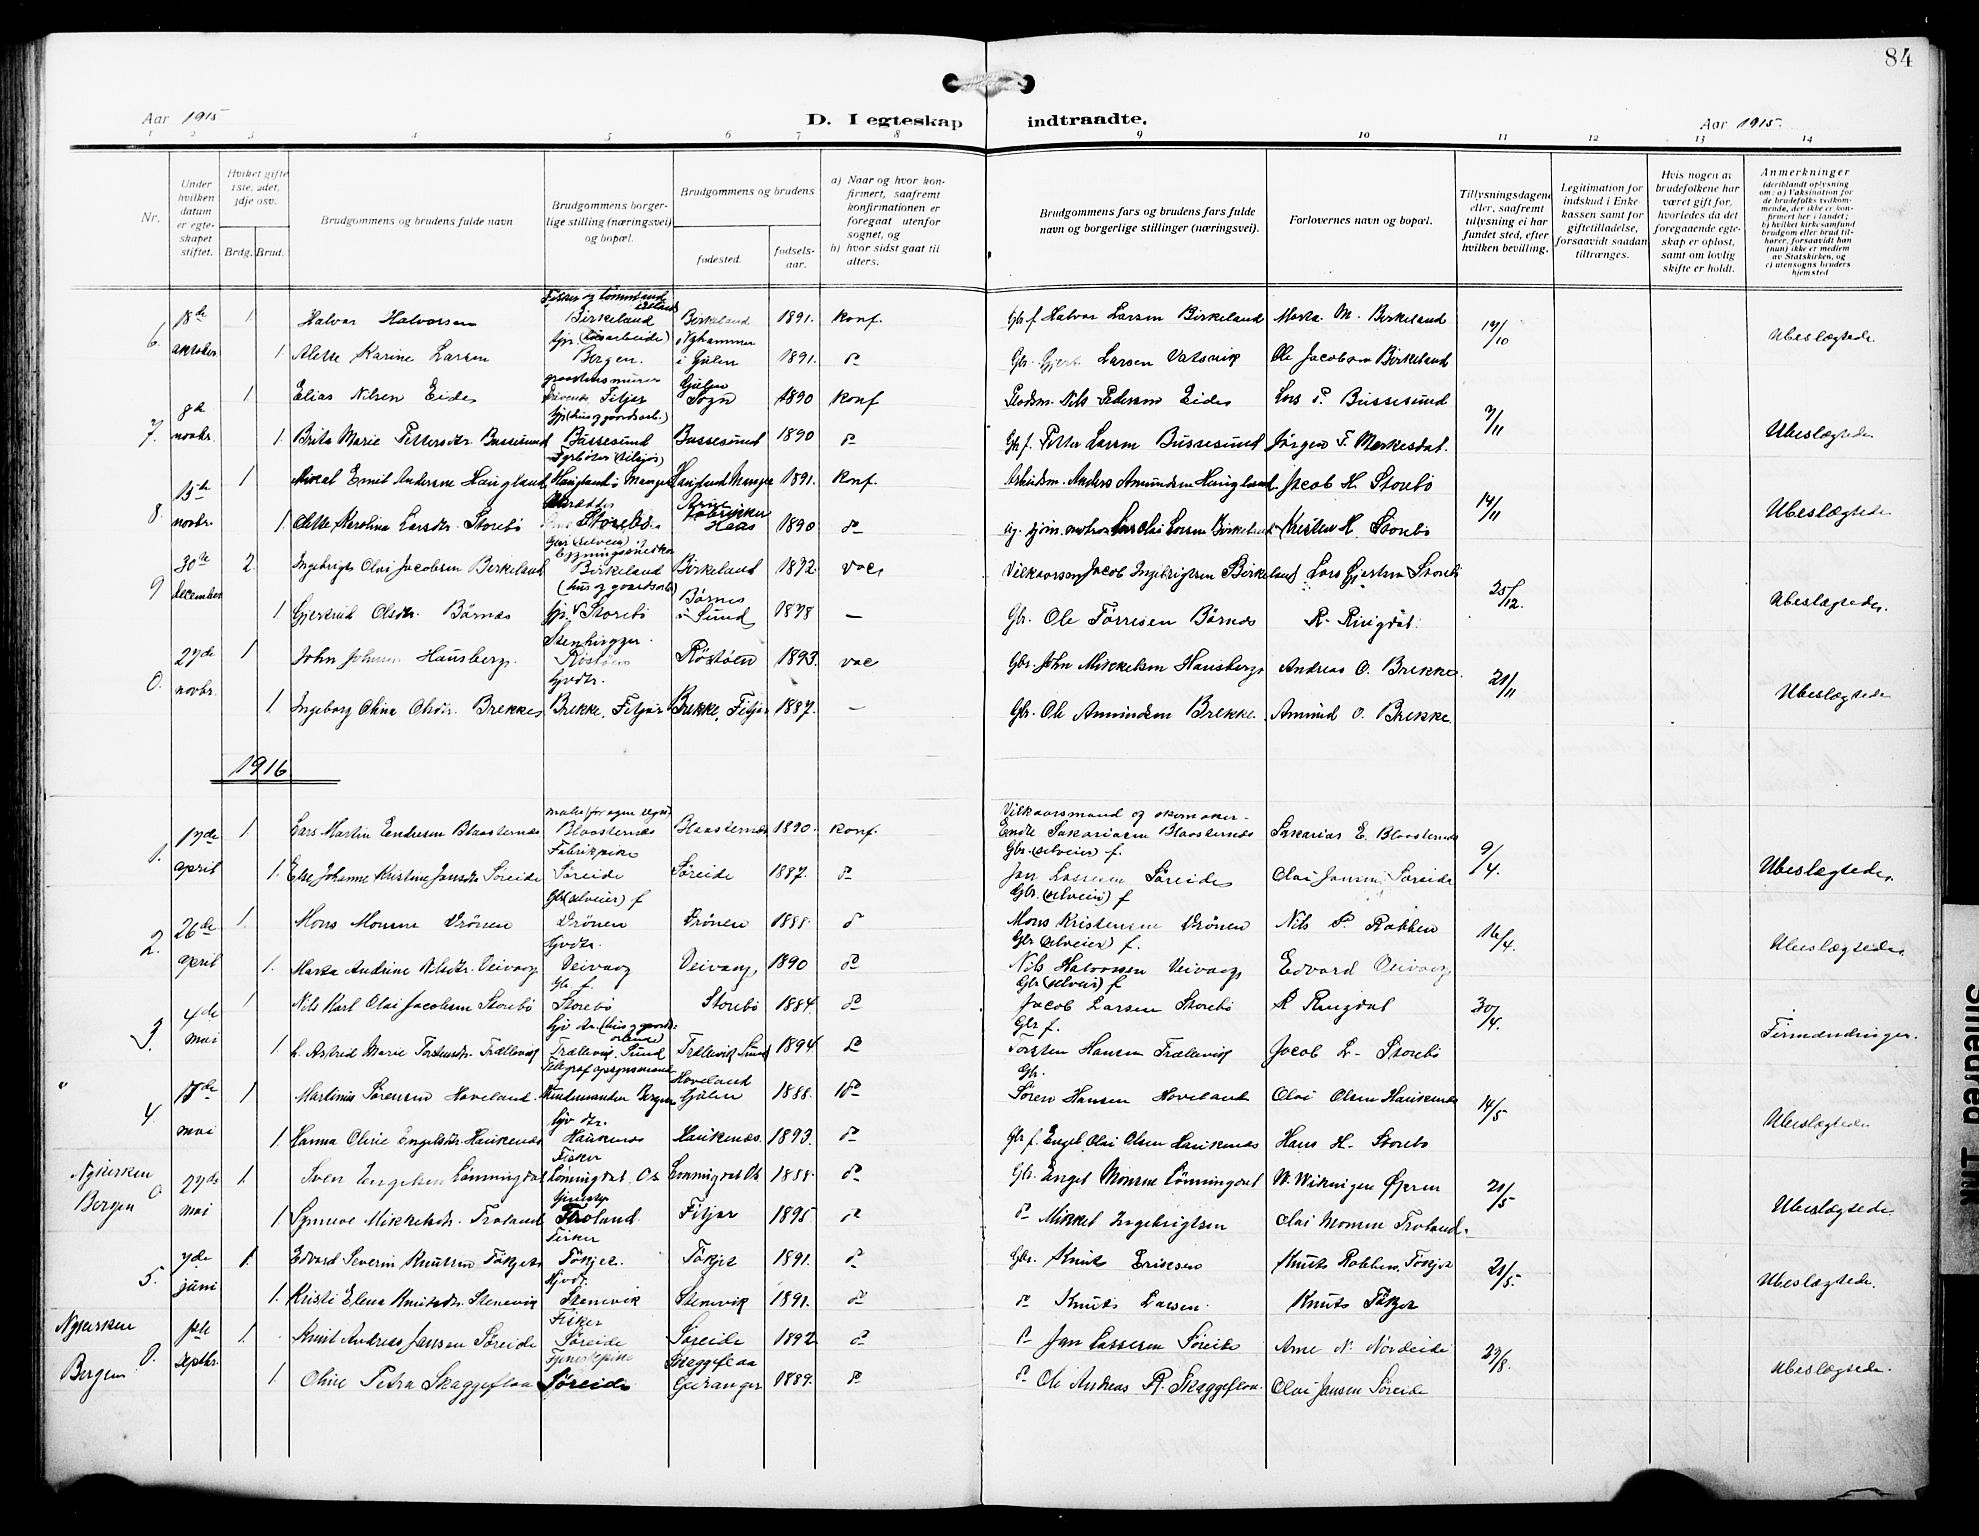 84
Aar 1915
D. I egteskap indtraadte.
Aar 1915.
1 2 3 4 5 6 7 8 9 10 11 12 13 14
Nr.
Under hvilken datum er egteskapet stiftet.
Hvilket gifte 1ste, 2det, 3dje osv.
Brdg. Brud.
Brudgommens og brudens fulde navn
Brudgommens borgerlige stilling (næringsvei) og bopæl.
Brudgommens og brudens
fødested.
fødselsaar.
a) Naar og hvor konfirmert, saafremt konfirmationen er foregaat utenfor sognet, og
b) hvor sidst gaat til alters.
Brudgommens fars og brudens fars fulde navn og borgerlige stillinger (næringsvei).
Forlovernes navn og bopæl.
Tillysningsdagene eller, saafremt tillysning ei har fundet sted, efter hvilken bevilling.
Legitimation for indskud i Enkekassen samt for giftetilladelse, forsaavidt saadan tiltrænges.
Hvis nogen av brudefolkene har været gift før, hvorledes da det foregaaende egteskap er opløst, samt om lovlig skifte er holdt.
Anmerkninger
(deriblandt oplysning om: a) Vaksination for de brudefolks vedkommende, der ikke er konfirmert her i landet; b) hvilket kirkesamfund brudgom eller brud tilhører, forsaavidt han (hun) ikke er medlem av Statskirken, og c) utensogns bruders hjemsted
6. 18de oktober 1 Halvor Halvorsen Birkeland Birkeland 1891. konf. Gbr f. Halvor Larsen Birkeland Marta M. Birkeland 17/10 Ubeslægtede
1. Alette Karine Larsen Bergen. i Gulen 1891. Gbr. Gjert Larsen Vatsvik Ole Jacobsen Birkeland
7. novbr. 1 Elias Nilsen Eide Fitjar Sogn 1890 konf Nils Pedersen Eide Lars P. Bussesund 7/11 Ubeslægtede
1. Brita Marie Pettersdtr. Bussesund Bussesund Bussesund 1890 Gb f. Petter Larsen Bussesund Jørgen T. Merkesdal.
8. 15de novbr. 1 Emil Andersen Haugland Haugland Manger Haugland Manger 1891. konf. Anders Amundsen Haugland Jacob H. Storebø 14/11 Ubeslægtede
1. Karolina Larsdtr. Storebø Storebø 1890 Lars Olai Larsen Birkeland Kristen H. Storebø
9 30te december 2. Ingebrigt Olai Jacobsen Birkeland Birkeland Birkeland 1872. vac Jacob Ingebrigtsen Birkeland Lars Gjertsen Storebø 25/12. Ubeslægtede.
1 Gjertrud Olsdtr. Børnes Storebø Børnes i Sund 1878 — Gbr. Ole Tørresen Børnes R. Ringdal.
0. 27de novbr. 1 John Johnsen Hausberg. Stenhugger. Røstøen 1893. vac Gbr. John Mikkelsen Hausberg Andreas O. Brekke. 21/11 Ubeslægtede
1. Ingeborg Olina Olsdtr. Brekke Brekke, Fitjar Brekke, Fitjar 1887. — Gbr. Ole Amundsen Brekke. Amund O. Brekke
1916
1. 17de april 1. Lars Martin Endresen Blaasternes Blaasternes Blaasternes 1890. konf. Vilkaarsmand og skomaker Endre Sakariasen Blaasternes Sakarias E. Blaasternes 9/4. Ubeslægtede.
1. Else Johanne Kristine Jansdtr Søreide Fabrikpike Søreide Søreide 1887. Gbr. (selveier) f. Jan Lassesen Søreide Olai Jansen Søreide
2. 26de april 1. Mons Monsen Drønen Gbr (selveier) f Drønen Drønen 1888. Gbr. (selveier) f Mons Kristensen Drønen Nils P. Rabben 16/4. Ubeslægtede
1. Marta Andrine Nilsdtr. Veivaag Gvdtr. Veivaag Veivaag 1890 Gbr (selveier) f. Nils Halvorsen Veivaag Edvard Veivaag
3. 4de mai 1 Nils Karl Olai Jacobsen Storebø Gbr. f. Storebø Storebø 1884. Gbr (selveier) f Jacob Larsen Storebø R Ringdal 30/4. Firmændinger.
1. Astrid Marie Torstensdtr. Trællevig Trællevig Sund Trællevig Sund 1894 Gbr f. Torsten Hansen Trællevig Jacob L. Storebø
" 4. mai 1 Martinus Sørensen Hoveland. Bergen Hoveland Gulen 1888. Gbr. Søren Hansen Hoveland Olai Olsen Haukenes 14/5 Ubeslægtede
1. Hanna Oline Engelsdtr. Haukenes Gbv dtr. Haukenes Haukenes. 1893. Gbr f. Engel Olai Olsen Haukenes Hans H. Storebø
Nykirken Bergen 0 27de mai 1. Sven Engelsen Lønningdal Fisker Lønningdal Os Lønningdal Os 1888. Gbr. Engel Monsen Lønningdal W. Wikingen Øpsen 21/5 Ubeslægtede
1. Synneve Mikkelsdtr. Troland Troland. Fitjar 1895 Mikkel Ingebrigtsen Olai Monsen Troland.
5. 7de juni 1. Edvard Severin Knutsen Tøkje Fisker Tøkje. Tøkje 1891. Gbr. Knut Eriksen Knut Rabben, Tøkje 21/5. Ubeslægtede.
1. Kristi Elena Knutsdtr. Stenevik Gvdt. Stenevik Stenevik 1891. Knut Larsen. Knut Tøkje
Nykirken Bergen 0. septbr. 1. Knut Andreas Jansen Søreide Fisker Søreide Søreide 1892 Jan Lassesen Søreide Arne N. Nordeide 27/8. Ubeslægtede.
1 Oline Petra Skaggeflaa Tjenestepike Søreide Skaggeflaa Geiranger 1889. Ole Andreas R. Skaggeflaa. Olai Jansen Søreide
Smeared Ink